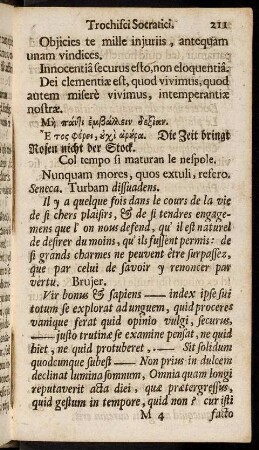 Trochisci Socratici. 211
Objicies te mille injuriis, antequam
unam vindices.
Innocentiâ securus esto, non eloquentiâ.
Dei clementiæ est, quod vivimus, quod
autem miserè vivimus, intemperantiæ
nostræ.
Μὴ πάντι ἐμβάλλειν δεξίαν.
Ἔτος φέρει, ουχὶ ἄρουρα. Die Zeit bringt
Rosen nicht der Stock.
Col tempo si maturan le nespole.
Nunquam mores, quos extuli, refero.
Seneca. Turbam dissuadens.
Il y a quelque fois dans le cours de la vie
de si chers plaisirs, & de si tendres engage-
mens que l' on nous defend, qu' il est naturel
de desirer du moins, qu' ils fussent permis: de
si grands charmes ne peuvent être surpassez,
que par celui de savoir y renoncer par
vertu. Brujer.
Vir bonus & sapiens — index ipse sui
totum se explorat ad unguem, quid proceres
vanique ferat quid opinio vulgi, securus,
— justo trutinæ se examine pensat, ne quid
hiet, ne quid protuberet, — Sit solidum
quodcunque subest — Non prius in dulcem
declinat lumina somnum, Omnia quam longi
reputaverit acta diei, quæ prætergressus,
quid gestum in tempore, quid non? cur isti
M 4 facto